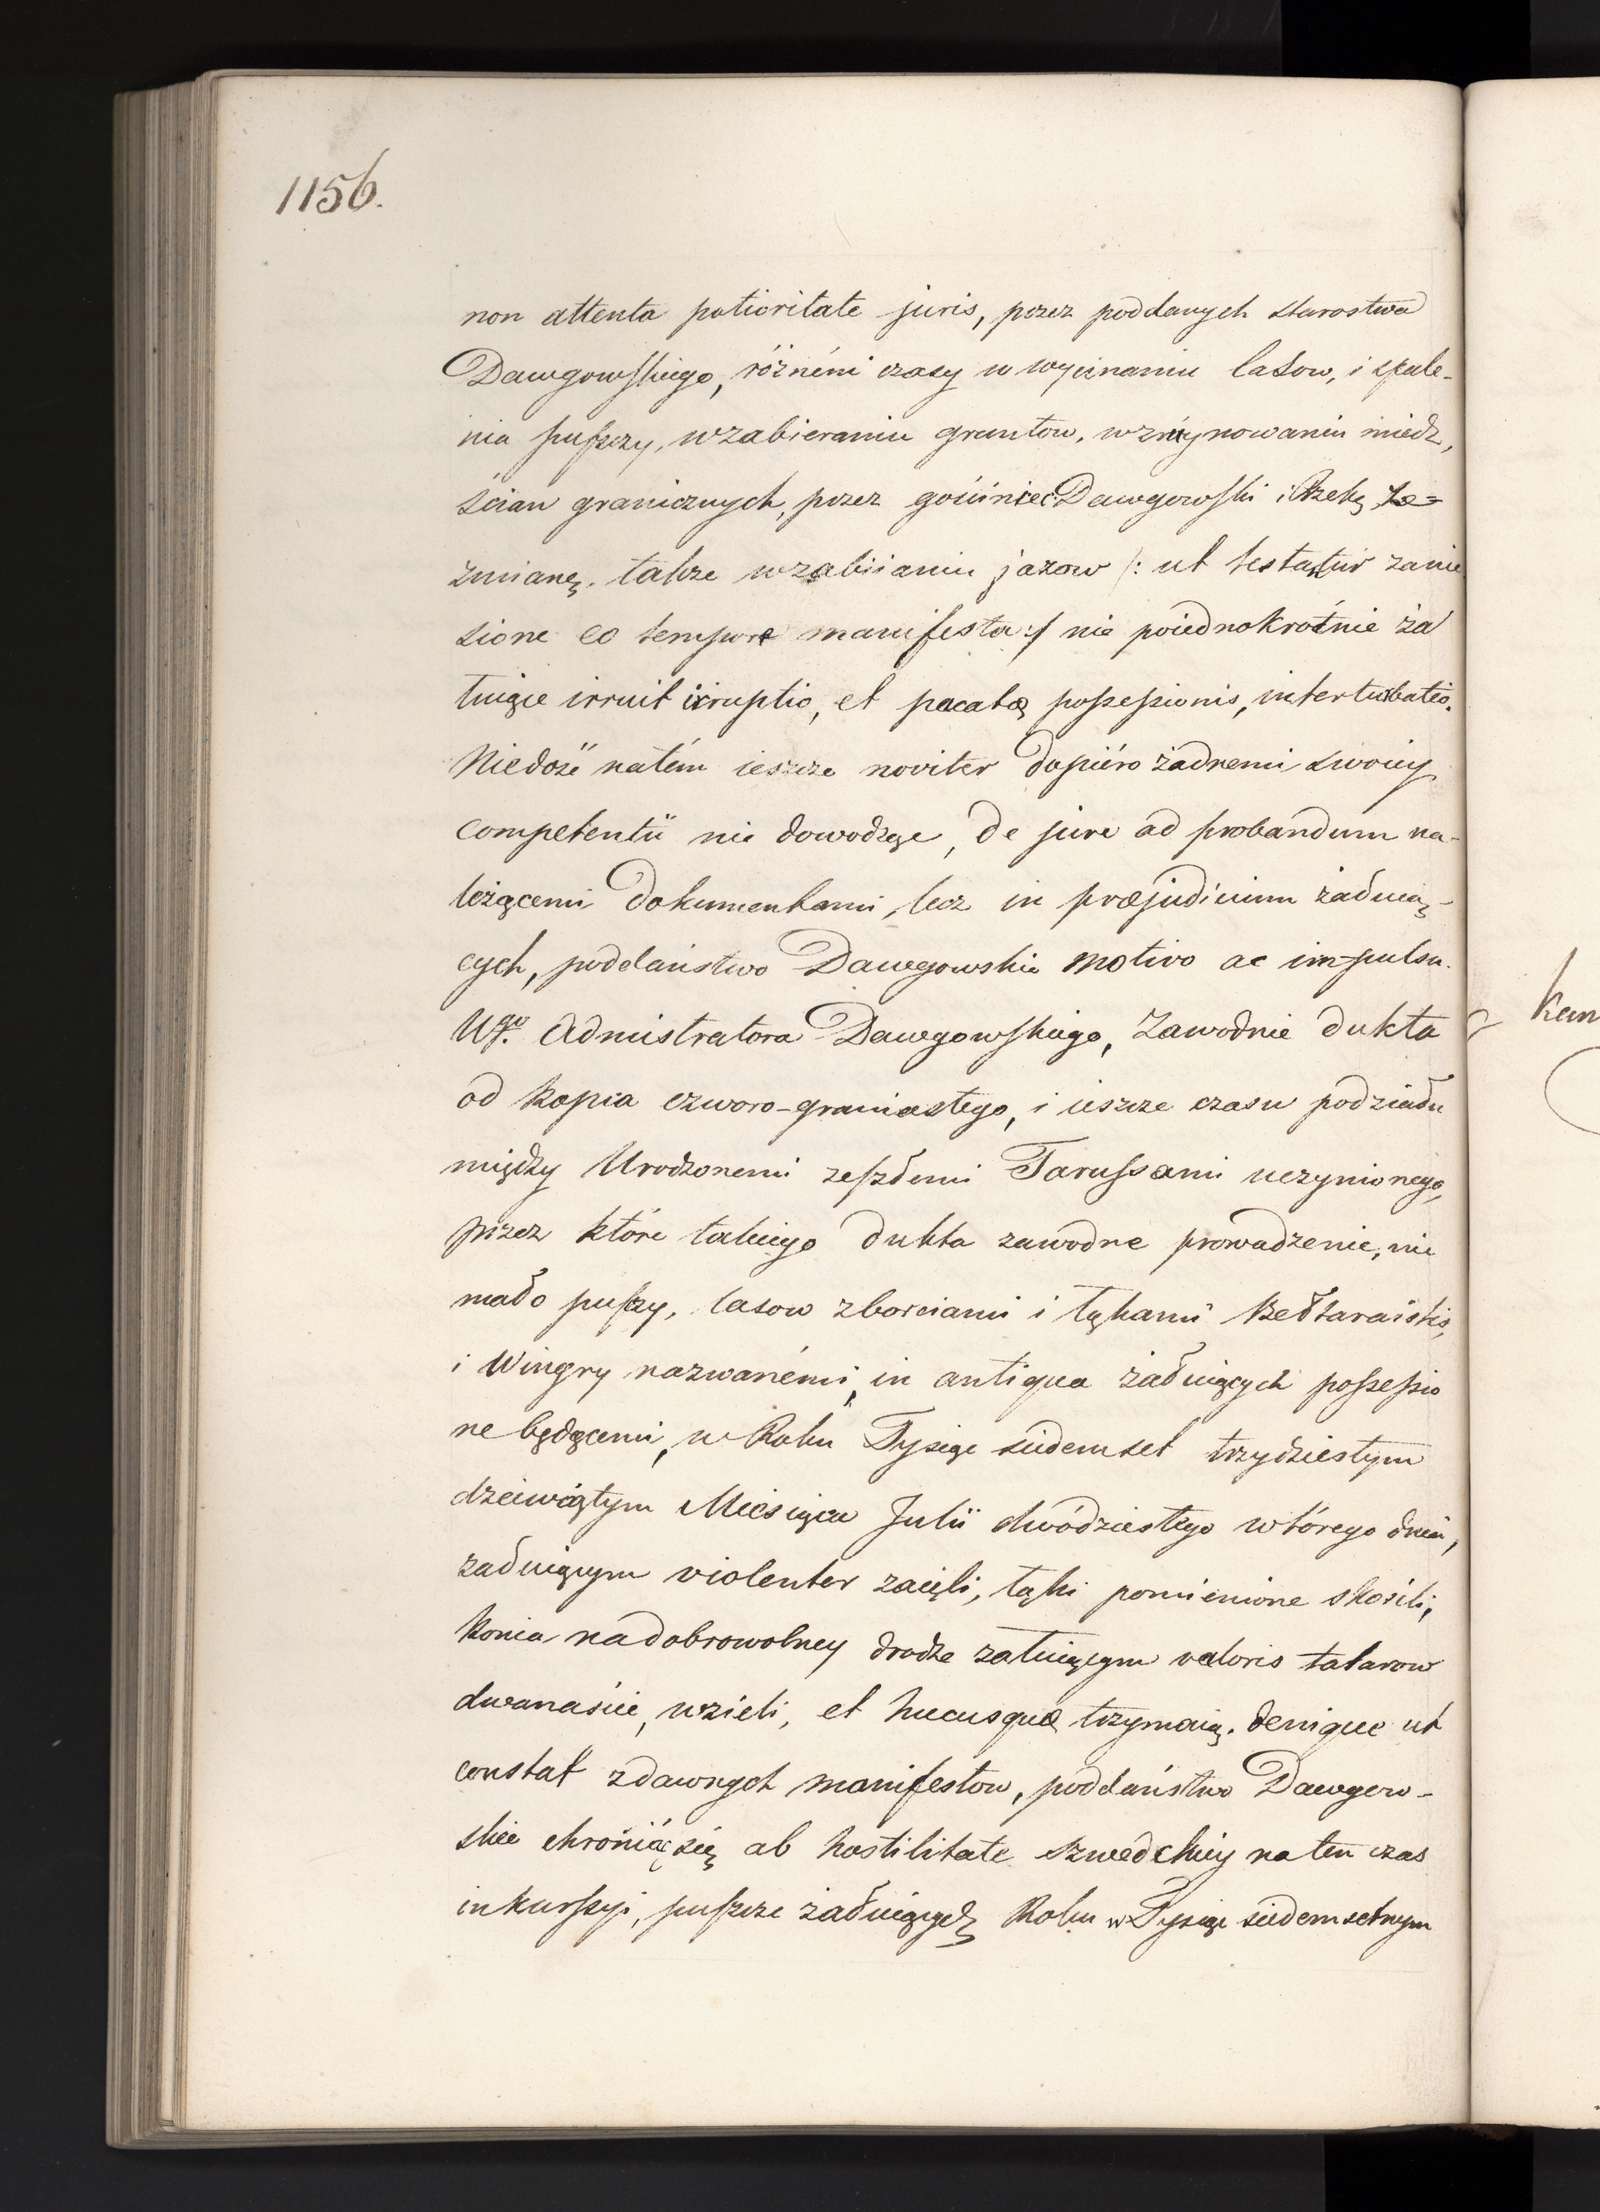 1156.
non attenta potioritate juris, przez poddanych starostwa
Dawgowskiego, różnémi czasy w wycinaniu lasow, i spale-
nia puszczy, w zabieraniu gruntow, w zruynowaniu miedz,
ścian granicznych, przez gościniec Dawgowski i Rzekę
zmianę, takze w zabiianiu jazow /: ut testantur zanie
sione eo tempore manifesta :/ nie poiednokrotnie ża
łuiące irruit irruptio, et pacatæ possessionis, interturbatio.
Niedość natém ieszcze noviter dopiéro żadnemi swoiey
competentii nie dowodząc, de jure ad probandum na-
leżącemi dokumentami, lecz in præjudicium żałuią-
cych, poddaństwo Dawgowskie motivo ac impulsu
Wgo. Admistratora Dawgowskiego, Zawodnie dukta
od kopca czworo-graniastego, i ieszcze czasu podziału
między Urodzonemi zeszłemi Tarussami uczynionego,
przez które takiego dukta zawodne prowadzenie, nie
mało puszczy, lasow z borciami i łąkami
i Wingry nazwanémi, in antiqua żałuiących possessio
ne będącemi, w Roku Tysiąc siedemset trzydziestym
dzeiwiątym Miesiąca Julii dwódziestego wtórego dnia,
żałuiącym violenter zaięli, łąki pomienione skosili,
konia na dobrowolney drodze żałuiącym valoris talarow
dwanaście, wzieli, et hucusquæ trzymaią. denique ut
constat z dawnych manifestow, poddaństwo Dawgow-
skie chroniąc się ab hostilitate szwedckiey na ten czas
inkurssyi, puszcze żałuiących Roku w Tysiąc siedemsetnym
kan